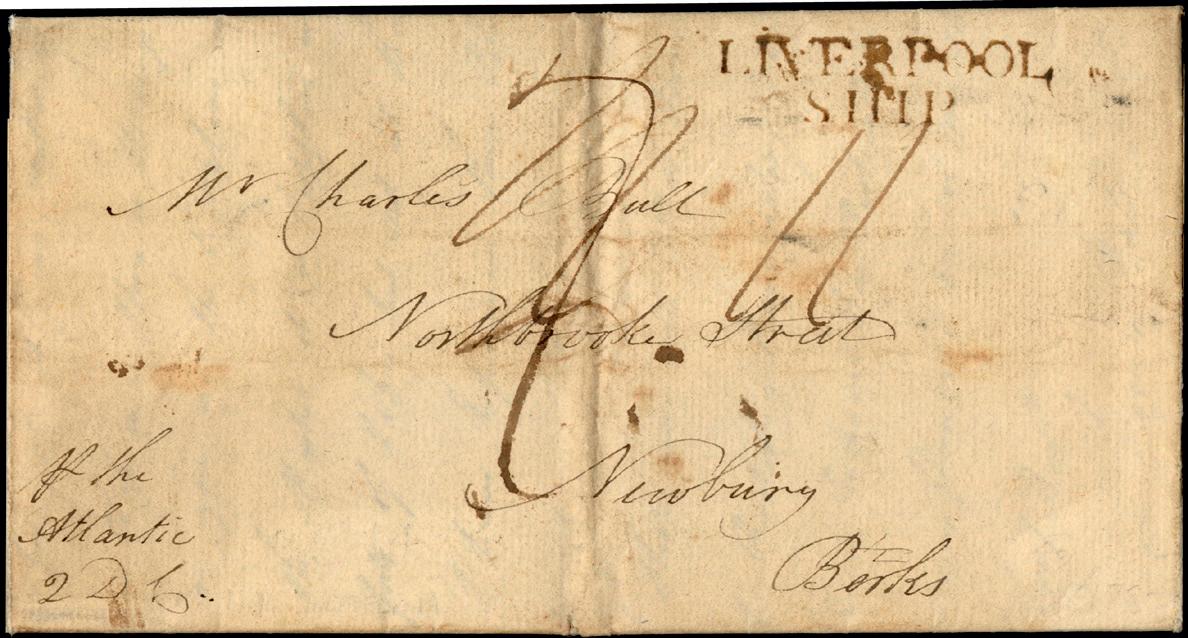 LIVERPOOL
SHIP
Mr Charles Bull
Northbrooke Street
Newbury
Berks
the
Atlantic
2 D